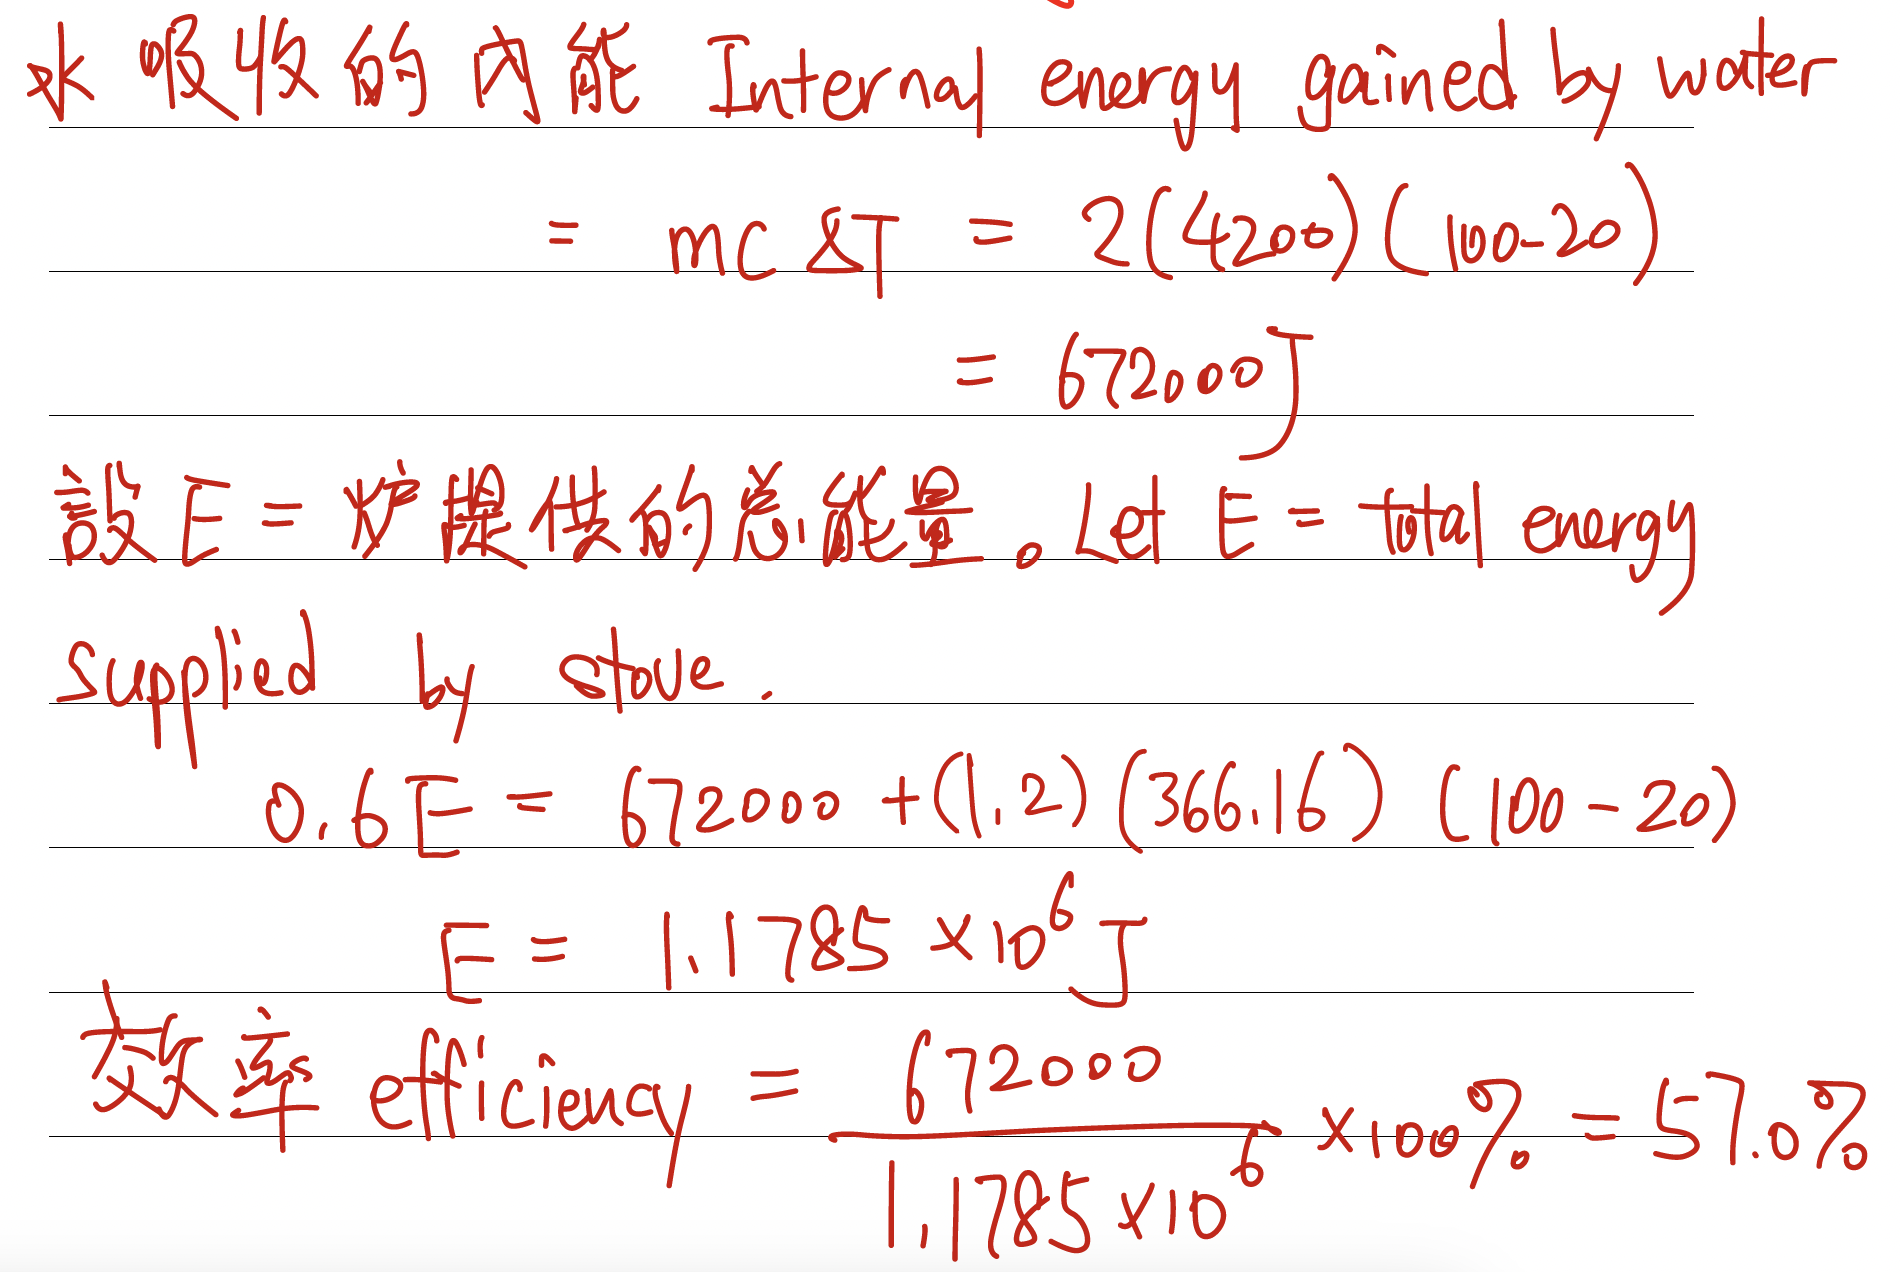 水吸收的內能 Internal energy gained by water
= mcΔT = 2(4200)(100-20)
= 672000J
設E=炉提供的总能量。Let E = total energy
supplied by stove.
0.6E = 672000 + (1.2)(366.16)(100-20)
E = 1.1785 ×10⁶ J
效率 efficiency = 672000 / 1.1785×10⁶ ×100% = 57.0%